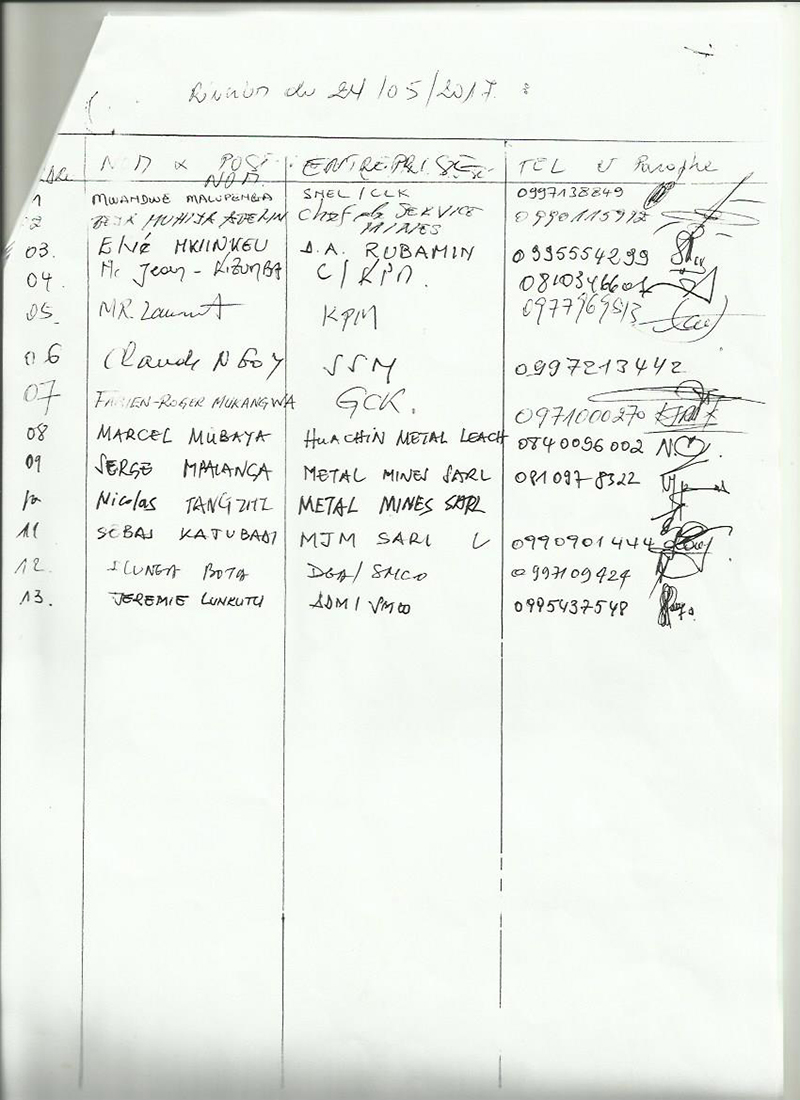 Réunion du 24/05/2017 :
NOM & POST-NOM ENTREPRISE TEL & Paraphe
1 MWANDWE MALUPEMBA SNEL/CLK 0997138849
02 Chef de SERVICE MINES
03. RUBAMIN 0995554299
04. Mr Jean - KIZUMBA C/KPM
05. MR. Laurent KPM
06 Claude NGOY SSM 0997213442
07 FABIEN-ROGER MUKANGWA GCK. 0971000270
08 MARCEL MUBAYA HUACHIN METAL LEACH 0840096002
09 SERGE MPALANGA METAL MINES SARL 081097-8322
Nicolas METAL MINES SARL
11 MJM SARL 0990901444
12. ILUNGA BOTA DGA/SMCO 0997109424
13. JEREMIE LUNKUTU ADM/SMCO 0995437548